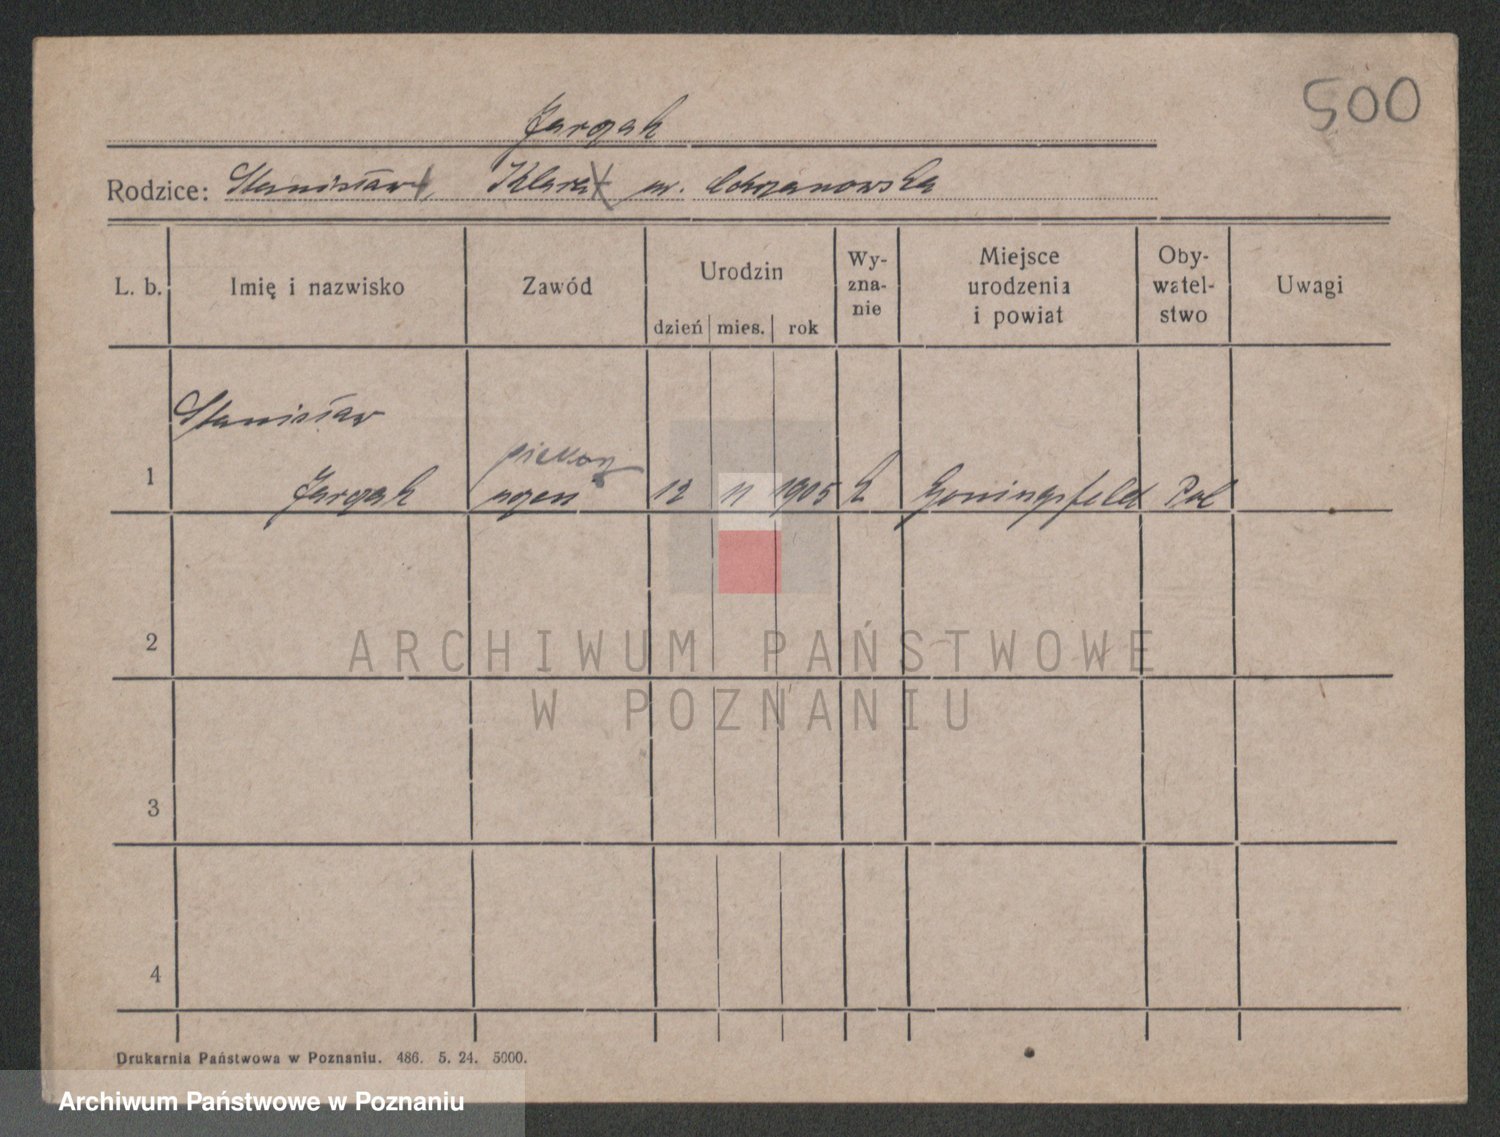 500
Jarząk
Rodzice: Stanisław, Klara ur. Chrzanowska
L. b. Imię i nazwisko Zawód Urodzin dzień mies. rok Wy-zna-nie Miejsce urodzenia i powiat Oby-watel-stwo Uwagi
Stanisław
1 Jarząk 12 11 1905 k Pol
2
ARCHIWUM PAŃSTWOWE
W POZNANIU
3
4
Drukarnia Państwowa w Poznaniu. 486. 5. 24. 5000.
Archiwum Państwowe w Poznaniu